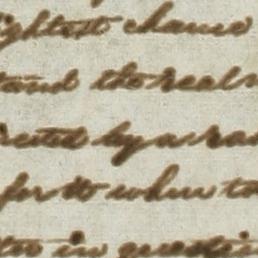 ightest chance
tand the real
by a ra
for its when to
in questi